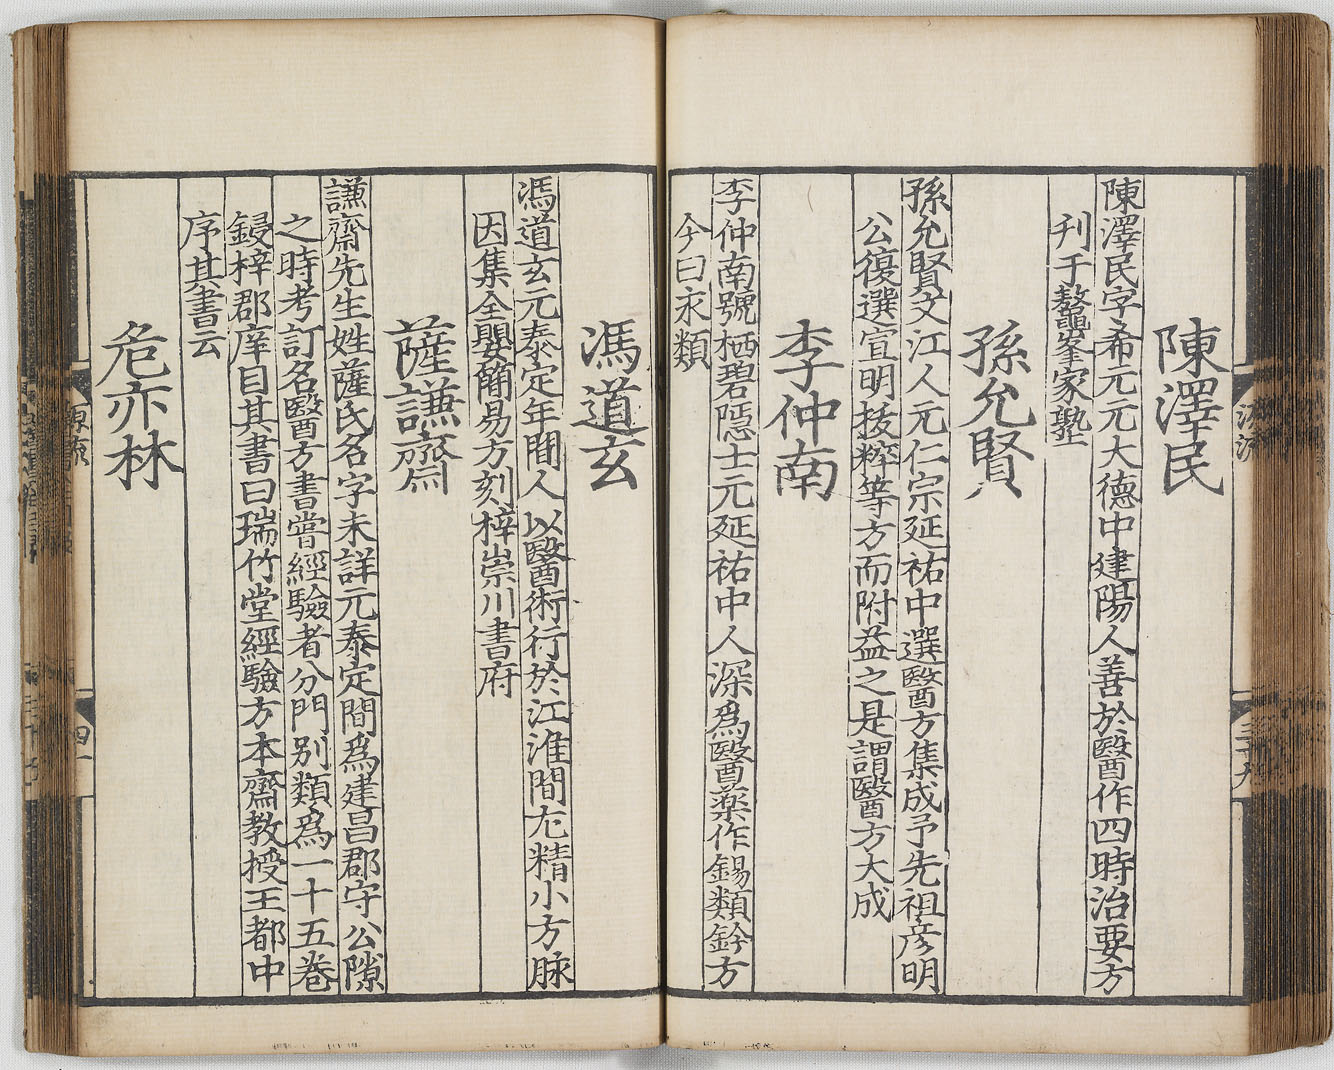 陳澤民
陳澤民字希元元大德中建陽人善於醫作四時治要方
刋于鼇峯家塾
孫允賢
孫允賢文江人元仁宗延祐中選醫方集成予先祖彦明
公復選宣明拔粹等方而附益之是謂醫方大成
李仲南
李仲南號栖碧隱士元延祐中人深爲醫藥作錫類鈐方
今曰永類
馮道玄
馮道玄元泰定年間人以醫術行於江淮間尤精小方脉
因集全嬰簡易方刻梓崇川書府
薩謙齋
謙齋先生姓薩氏名字未詳元泰定間爲建昌郡守公隙
之時考訂名醫方書嘗經驗者分門别類爲一十五巻
鋟梓郡庠目其書曰瑞竹堂經驗方本齋教授王都中
序其書云
危亦林